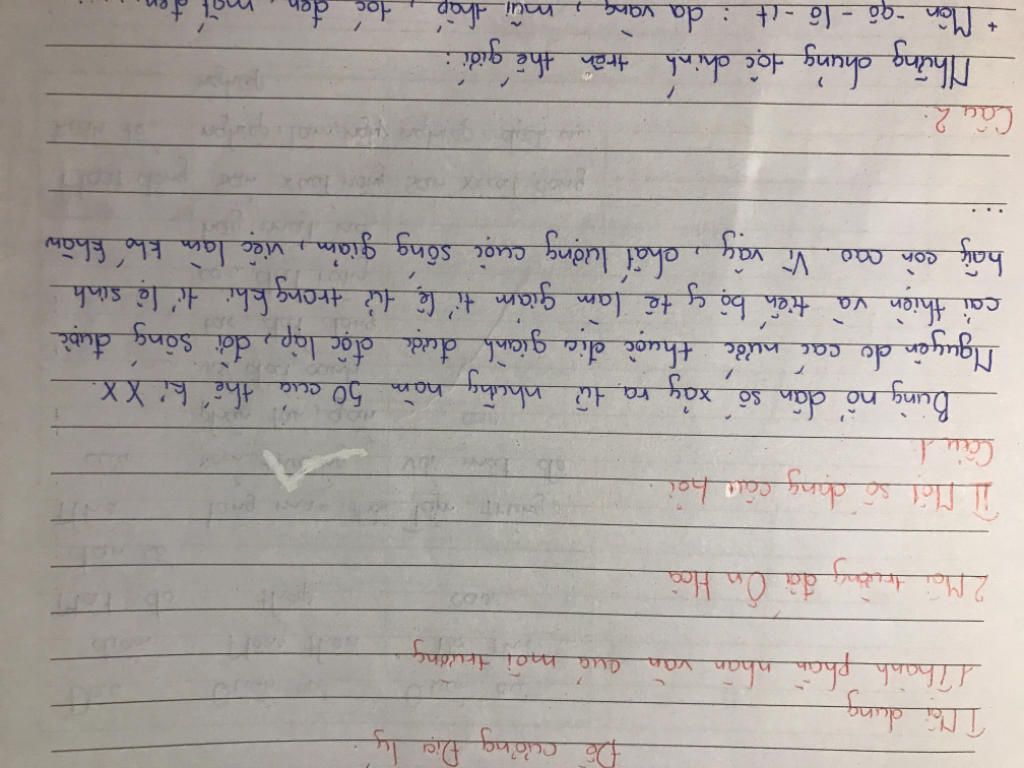 Đề cương Địa lý
I Nội dung
1 Thành phần nhân văn của môi trường.
2 Môi trường đới Ôn Hoà
II Một số dạng câu hỏi.
Câu 1.
Bùng nổ dân số xảy ra từ những năm 50 của thế kỉ XX.
Nguyên do các nước thuộc địa giành được độc lập, đời sống được
cải thiện và tiến bộ y tế làm giảm tỉ lệ tử trong khi tỉ lệ sinh
còn cao. Vì vậy, chất lượng cuộc sống giảm, việc làm khó khăn
...
Câu 2.
Những chủng tộc chính trên thế giới:
+ Môn-gô-lô-it: da vàng, mũi thấp, tóc đen, mắt đen